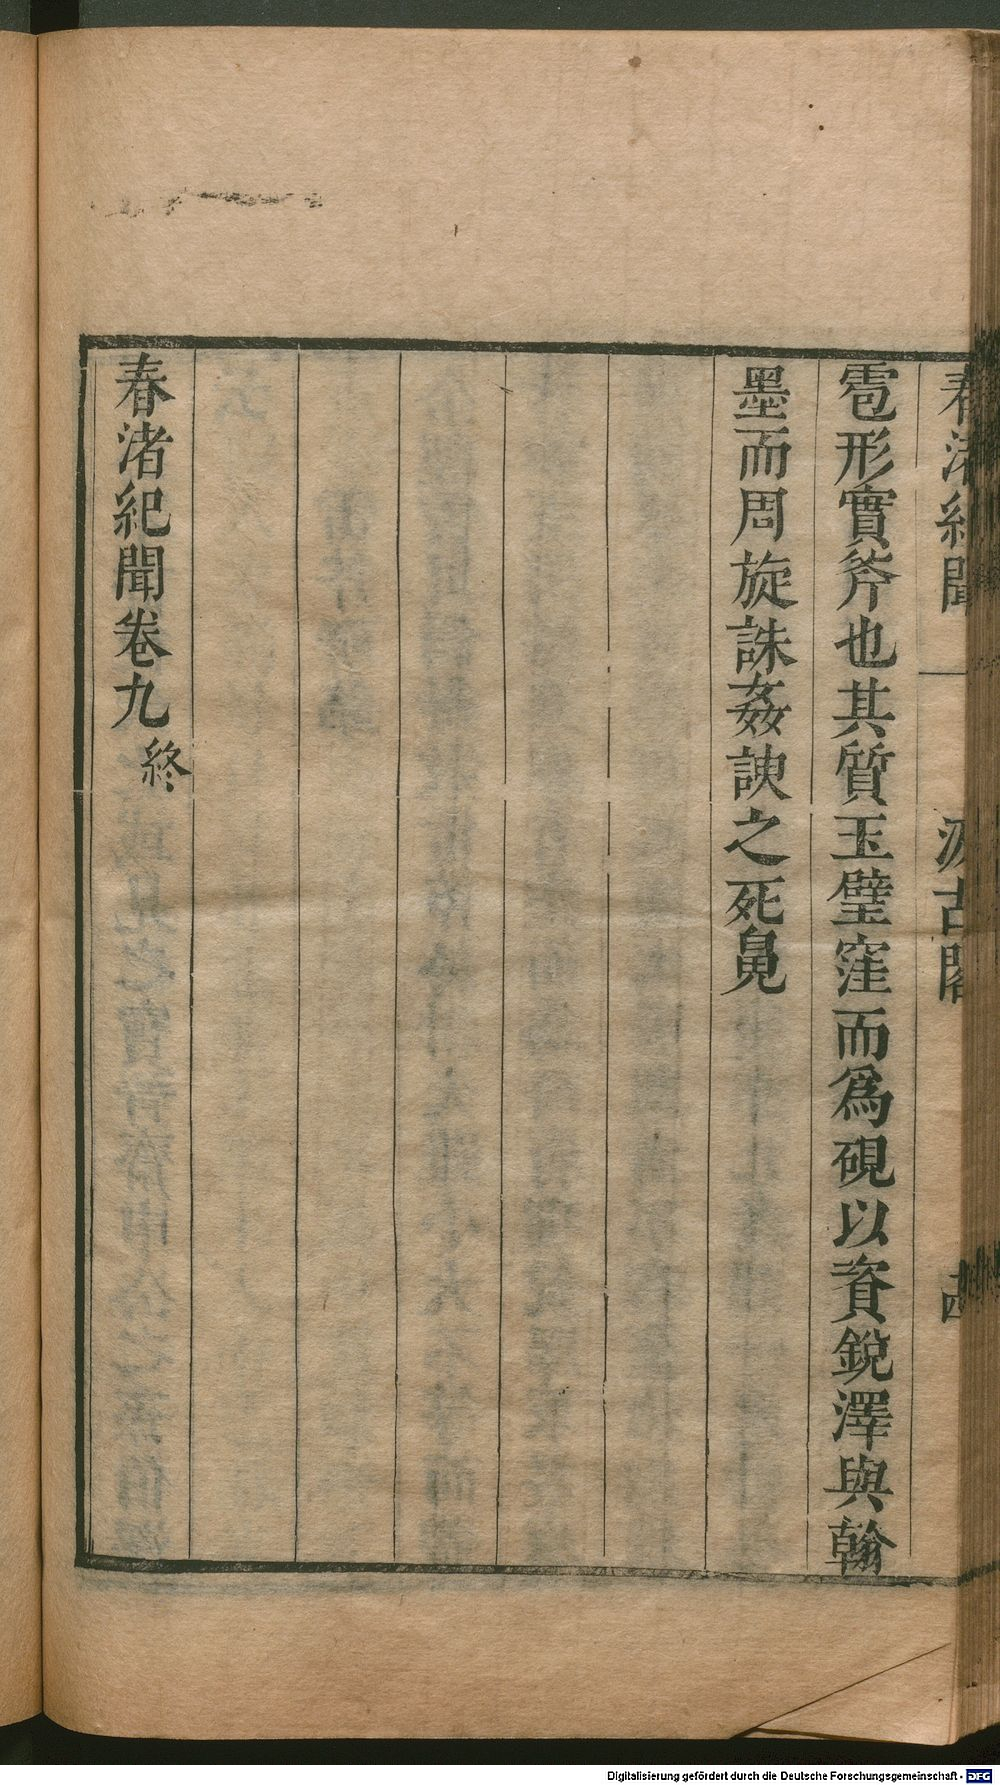 春渚紀聞
汲古閣
雹形實斧也其質玉壁窪而爲硯以資銳澤與翰
墨而周旋誅姦諛之死魄
春渚紀聞卷九終
Digitalisierung gefördert durch die Deutsche Forschungsgemeinschaft - DFG